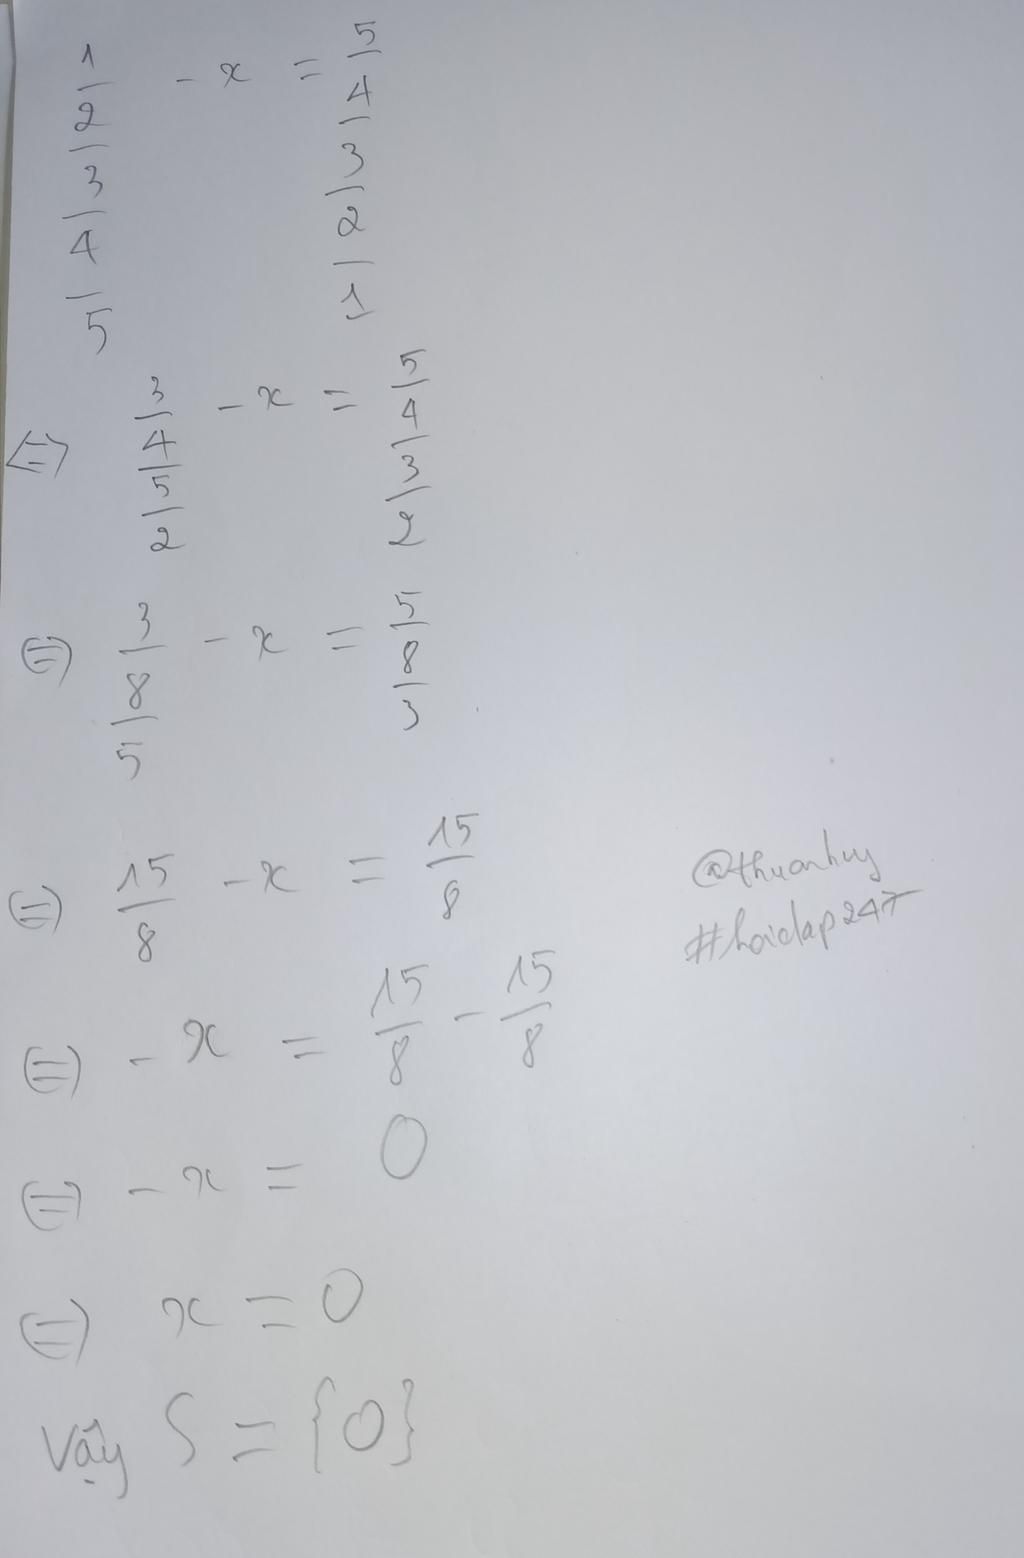 1/2/3/4/5 - x = 5/4/3/2/1
<=> 3/4/5/2 - x = 5/4/3/2
(=) 3/8/5 - x = 5/8/3
(=) 15/8 - x = 15/8
@thuanhuy
#hoidap247
(=) - x = 15/8 - 15/8
(=) - x = 0
(=) x = 0
Vậy S = {0}